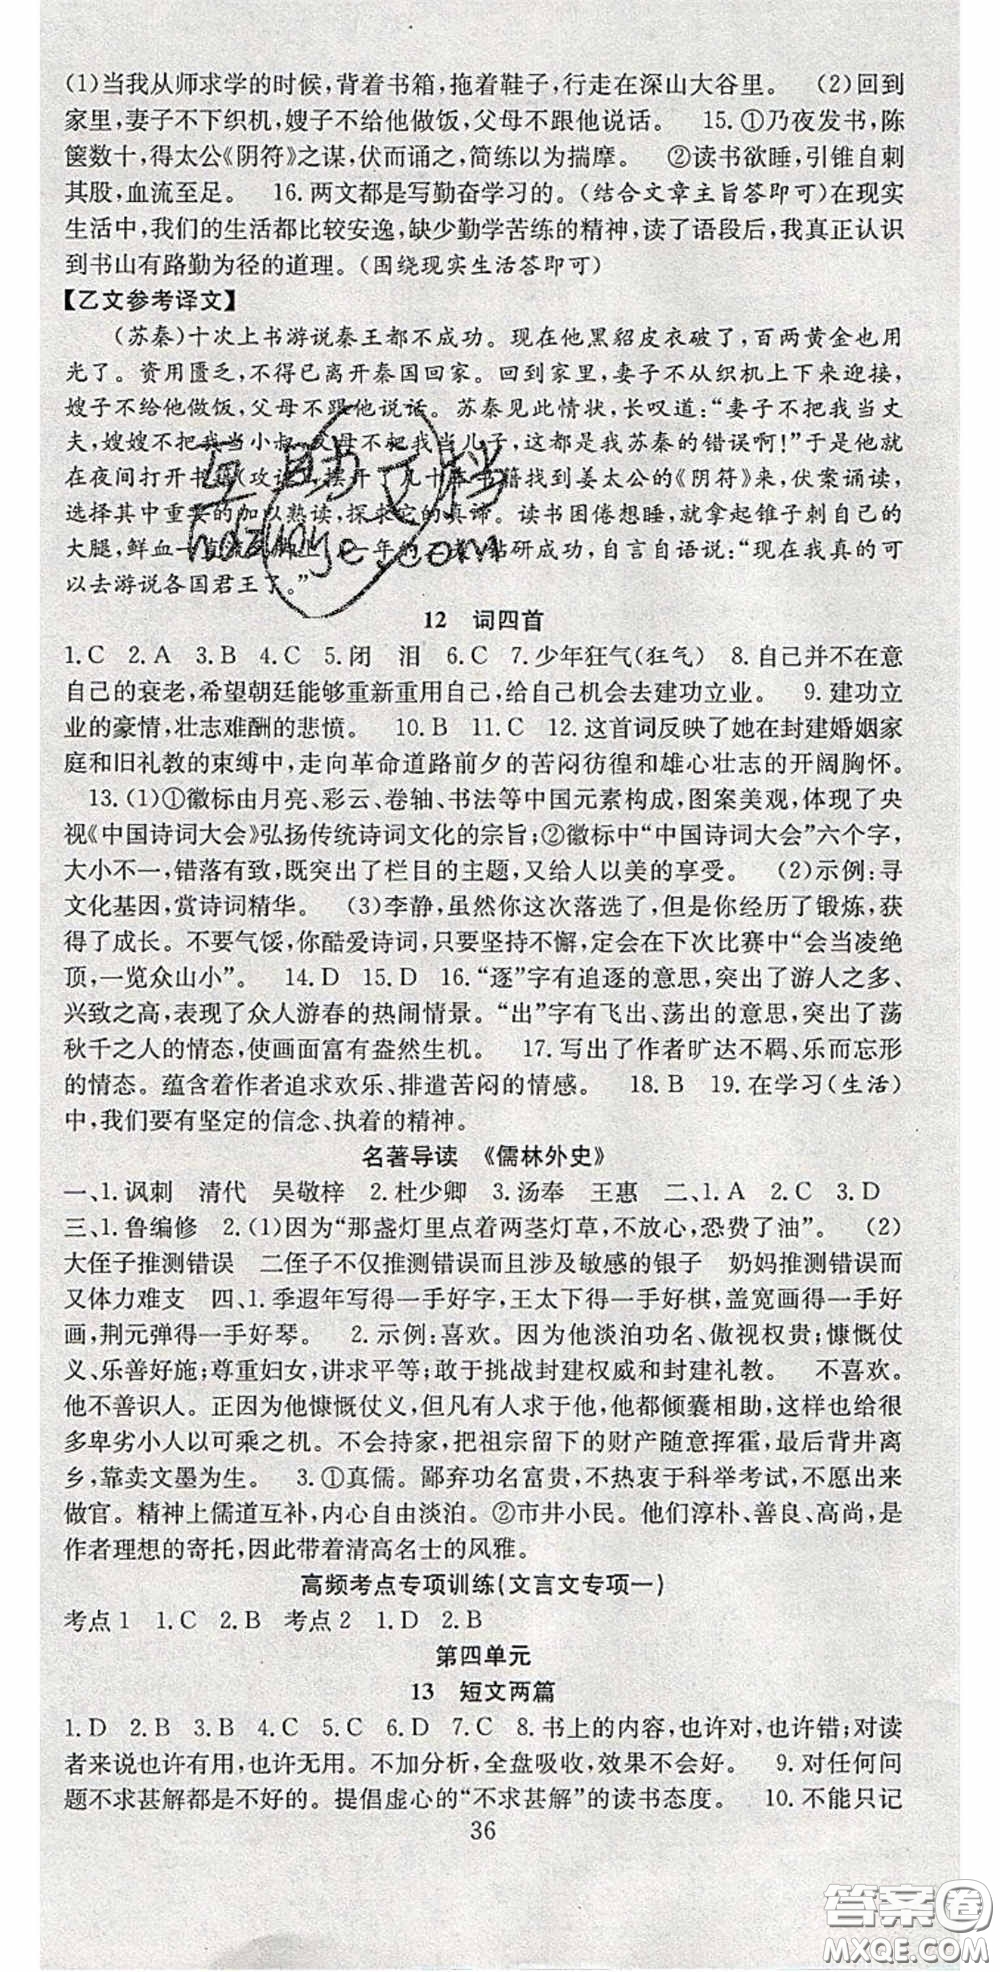 (1)当我从师求学的时候,背着书箱,拖着鞋子,行走在深山大谷里。 (2)回到
家里,妻子不下织机,嫂子不给他做饭,父母不跟他说话。 15.①乃夜发书,陈
箧数十,得太公《阴符》之谋,伏而诵之,简练以为揣摩。 ②读书欲睡,引锥自刺
其股,血流至足。 16.两文都是写勤奋学习的。(结合文章主旨答即可)在现实
生活中,我们的生活都比较安逸,缺少勤学苦练的精神,读了语段后,我真正认识
到书山有路勤为径的道理。(围绕现实生活答即可)
【乙文参考译文】
(苏秦)十次上书游说秦王都不成功。现在他黑貂皮衣破了,百两黄金也用
光了。资用匮乏,不得已离开秦国回家。回到家里,妻子不从织机上下来迎接,
嫂子不给他做饭,父母不跟他说话。苏秦见此情状,长叹道:“妻子不把我当丈
夫,嫂嫂不把我当小叔,父母不把我当儿子,这都是我苏秦的错误啊!”于是他就
在夜间打开书箱(攻读),摆开了几十本书籍找到姜太公的《阴符》来,伏案诵读,
选择其中重要的加以熟读,探求它的真谛。读书困倦想睡,就拿起锥子刺自己的
大腿,鲜血一直流 一年 钻研成功,自言自语说:“现在我真的可
以去游说各国君王了。”
12 词四首
1.C 2.A 3.B 4.C 5.闭 泪 6.C 7.少年狂气(狂气) 8.自己并不在意
自己的衰老,希望朝廷能够重新重用自己,给自己机会去建功立业。 9.建功立
业的豪情,壮志难酬的悲愤。 10.B 11.C 12.这首词反映了她在封建婚姻家
庭和旧礼教的束缚中,走向革命道路前夕的苦闷彷徨和雄心壮志的开阔胸怀。
13.(1)①徽标由月亮、彩云、卷轴、书法等中国元素构成,图案美观,体现了央
视《中国诗词大会》弘扬传统诗词文化的宗旨;②徽标中“中国诗词大会”六个字,
大小不一,错落有致,既突出了栏目的主题,又给人以美的享受。 (2)示例:寻
文化基因,赏诗词精华。 (3)李静,虽然你这次落选了,但是你经历了锻炼,获
得了成长。不要气馁,你酷爱诗词,只要坚持不懈,定会在下次比赛中“会当凌绝
顶,一览众山小”。 14.D 15.D 16.“逐”字有追逐的意思,突出了游人之多、
兴致之高,表现了众人游春的热闹情景。“出”字有飞出、荡出的意思,突出了荡
秋千之人的情态,使画面富有盎然生机。 17.写出了作者旷达不羁、乐而忘形
的情态。蕴含着作者追求欢乐、排遣苦闷的情感。 18.B 19.在学习(生活)
中,我们要有坚定的信念、执着的精神。
名著导读 《儒林外史》
一、1.讽刺 清代 吴敬梓 2.杜少卿 3.汤奉 王惠 二、1.A 2.C 3.D
三、1.鲁编修 2.(1)因为“那盏灯里点着两茎灯草,不放心,恐费了油”。 (2)
大侄子推测错误 二侄子不仅推测错误而且涉及敏感的银子 奶妈推测错误而
又体力难支 四、1.季遐年写得一手好字,王太下得一手好棋,盖宽画得一手好
画,荆元弹得一手好琴。 2.示例:喜欢。因为他淡泊功名、傲视权贵;慷慨仗
义、乐善好施;尊重妇女,讲求平等;敢于挑战封建权威和封建礼教。 不喜欢。
他不善识人。正因为他慷慨仗义,但凡有人求于他,他都倾囊相助,这就给很
多卑劣小人以可乘之机。不会持家,把祖宗留下的财产随意挥霍,最后背井离
乡,靠卖文墨为生。 3.①真儒。鄙弃功名富贵,不热衷于科举考试,不愿出来
做官。精神上儒道互补,内心自由淡泊。②市井小民。他们淳朴、善良、高尚,是
作者理想的寄托,因此带着清高名士的风雅。
高频考点专项训练(文言文专项一)
考点1 1.C 2.B 考点2 1.D 2.B
第四单元
13 短文两篇
1.D 2.B 3.B 4.C 5.C 6.D 7.C 8.书上的内容,也许对,也许错;对读
者来说也许有用,也许无用。不加分析,全盘吸收,效果不会好。 9.对任何问
题不求甚解都是不好的。提倡虚心的“不求甚解”的读书态度。 10.不能只记
36
互助文档
hdzuoye.com
答案圈
MXQE.COM